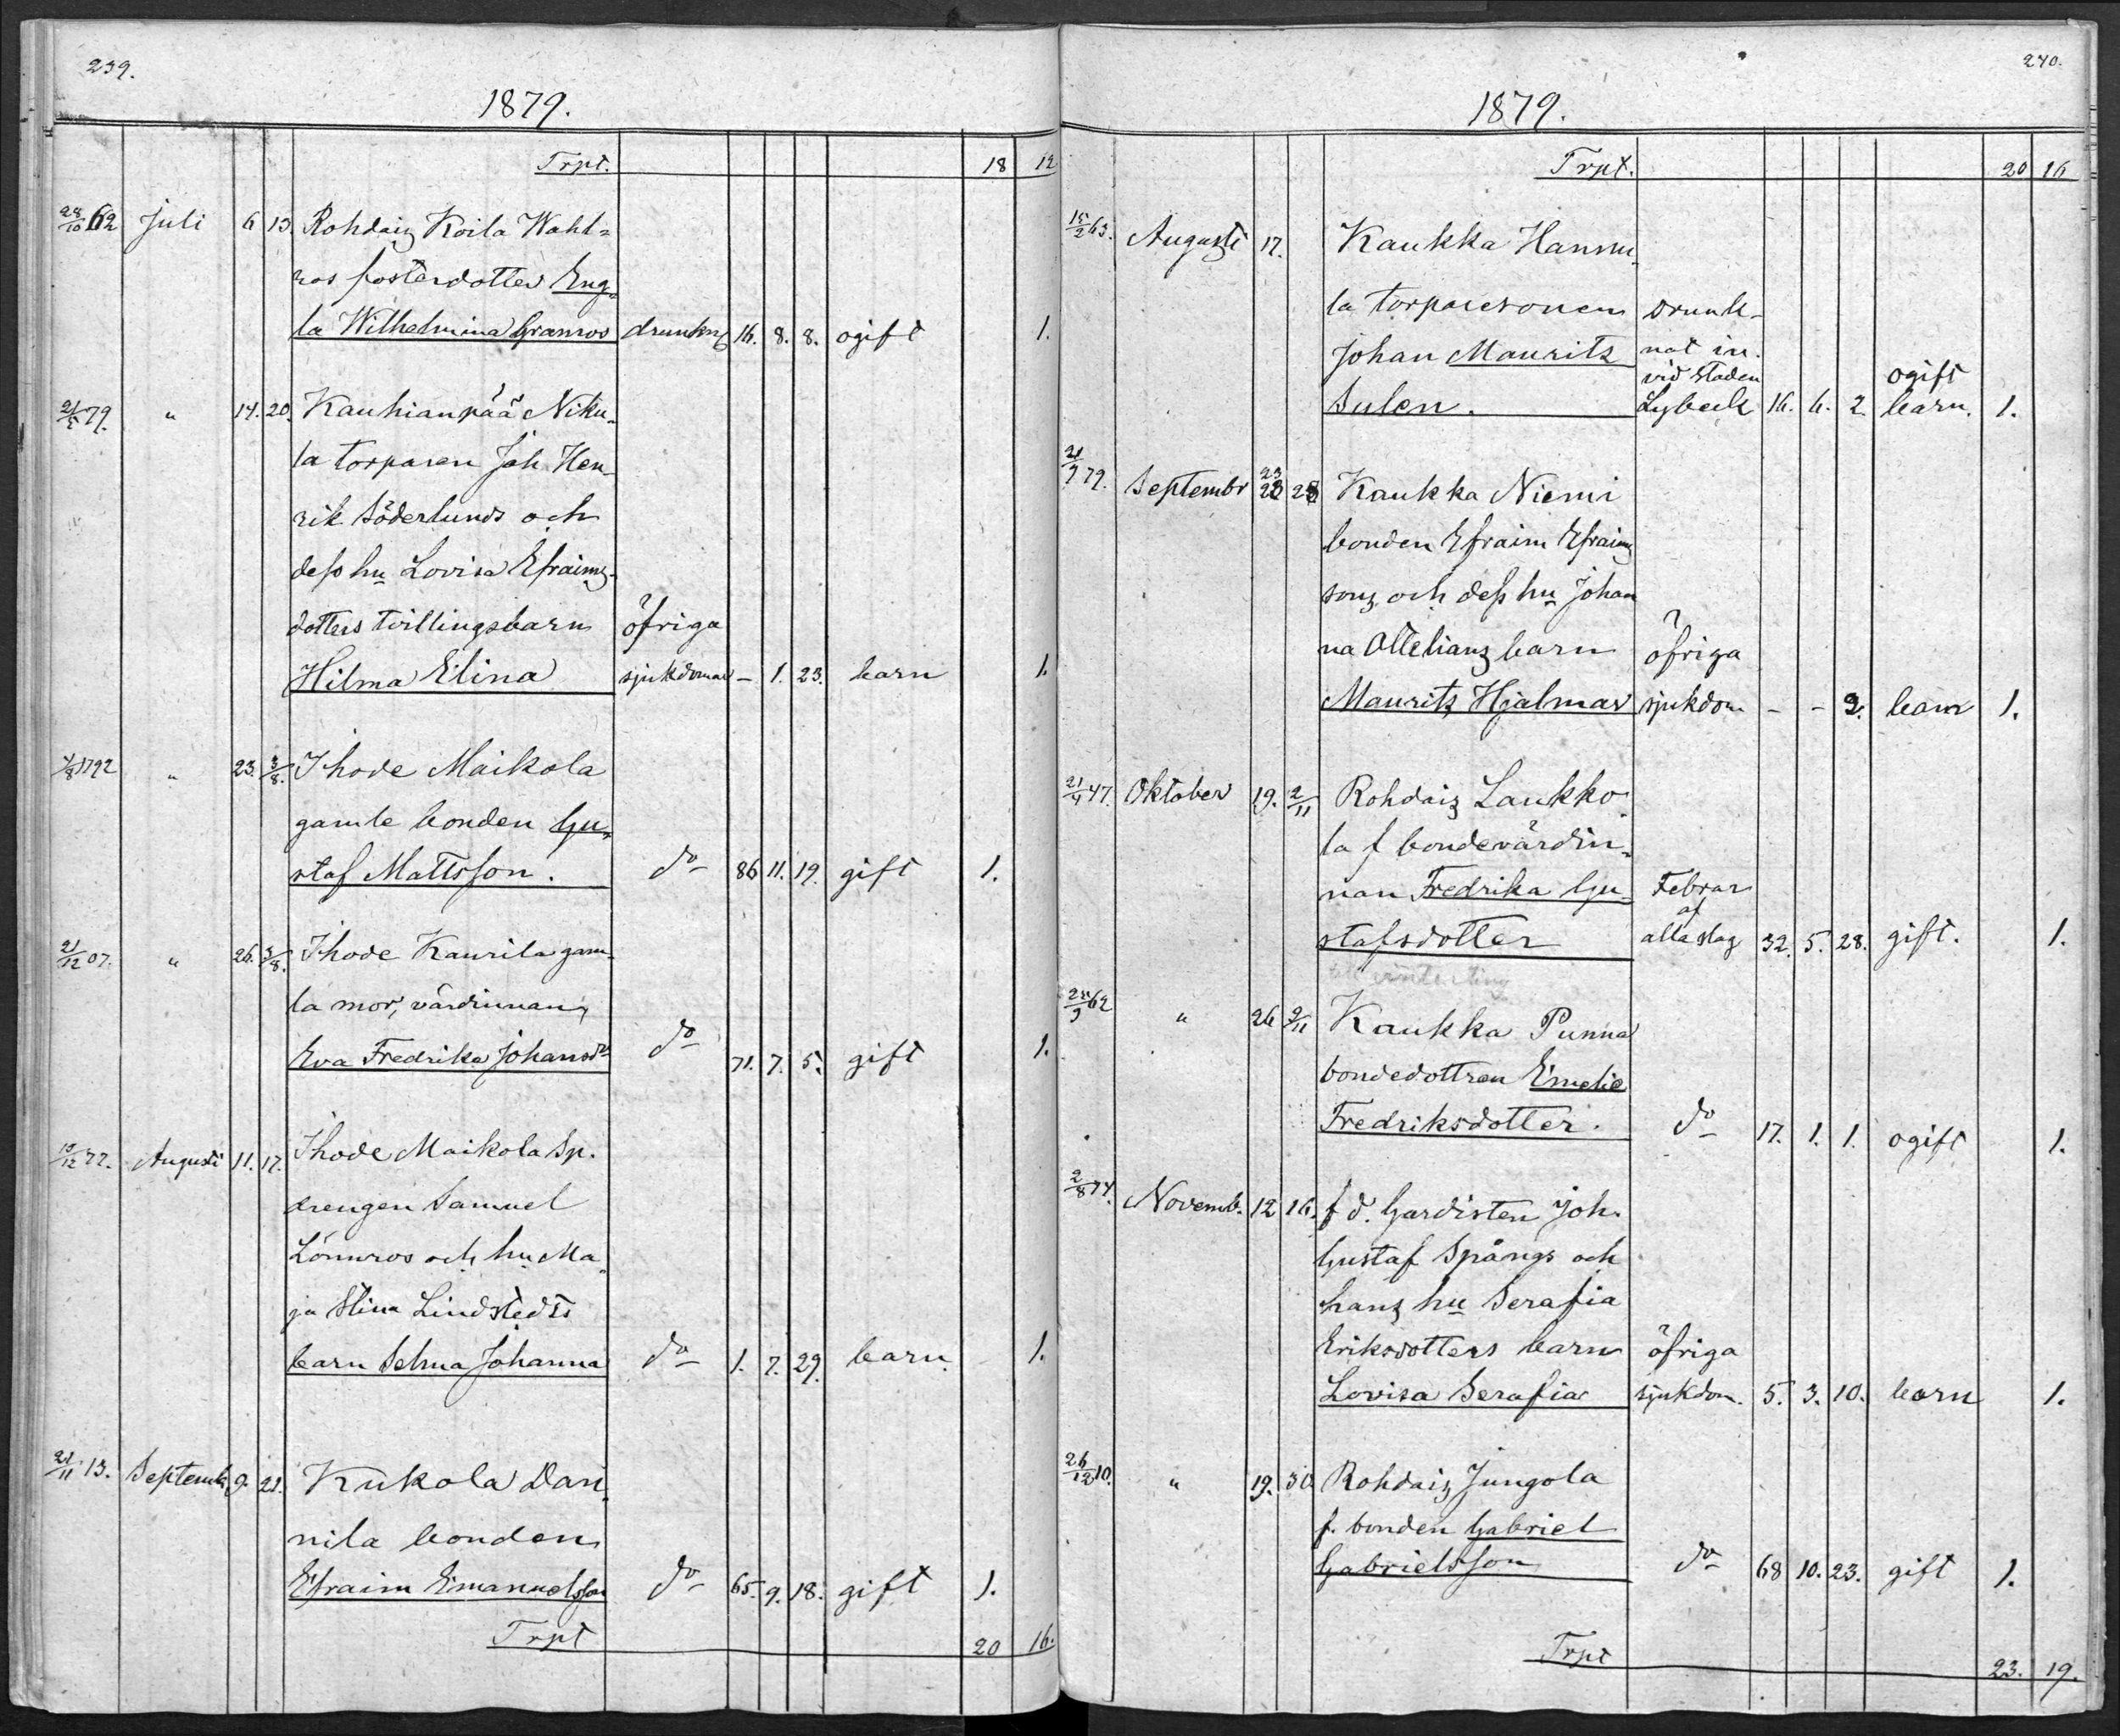 239.
1879.
Trpt. 18 12
28/10 62 Juli 6 13. Rohdais Koila Wahl=
ros fosterdotter Eng-
la Wilhelmina Granroos drunkng 16. 8. 8. ogift 1.
21/5 79. " 14. 20. Kauhianpää Niku-
la torparen Joh. Hen-
rik Söderlunds och
dess hu Lovisa Efraims-
dotters tvillingsbarn öfriga
Hilma Elina sjukdomar – 1. 23. barn 1.
4/8 1792 " 23. 3/8. Ihode Maikola
gamle bonden Gu-
staf Mattsson. do 86 11. 19. gift 1.
21/12 07. " 26. 3/8. Ihode Kaurila gam-
la mor, värdinnan,
Eva Fredrika Johansdr do 71. 7. 5. gift 1.
13/12 77. Augusti 11. 17. Ihode Maikola Sp.
drengen Samuel
Lönnros och hu Ma-
ja Stina Lindstedts
barn Selma Johanna do 1. 7. 29. barn 1.
21/11 13. Septemb. 9. 21. Kukola Dan-
nila bonden
Efraim Emanuelsson do 65. 9. 18. gift 1.
Trpt 20 16.
240.
1879.
Trpt. 20 16
15/2 63. Augusti 17. Kaukka Hannu-
la torparesonen drunk-
Johan Mauritz nat in.
vid staden ogift
Sulen. Lybeck 16. 6. 2. barn. 1.
21/9 79. Septembr 23 28 Kaukka Niemi
bonden Efraim Efraims
sons och dess hu Johan
na Ottelians barn öfriga
Mauritz Hjalmar sjukdom – – 2. barn 1.
21/4 47. Oktober 19. 2/11 Rohdais Laukko
la f bondevärdin-
nan Fredrika Gu- Febrar
af
stafsdotter alla slag 32. 5. 28. gift. 1.
25/9 62 " 26 2/11 Kaukka Punna
bondedottren Emelie
Fredriksdotter. do 17. 1. 1. ogift 1.
2/8 74. Novemb. 12 16. f d. Gardisten Joh.
Gustaf Spångs och
hans hu Serafia
Eriksdotters barn öfriga
Lovisa Serafia sjukdom. 5. 3. 10. barn 1.
26/12 10. " 19. 30 Rohdais Jungola
f. bonden Gabriel
Gabrielsson do 68 10. 23. gift 1.
Trpt 23. 19.